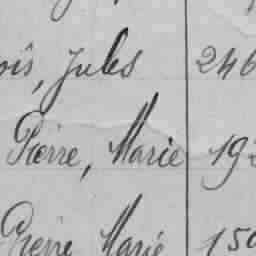 ois, Jules 246
Pierre, Marie 192
Pierre Marie 150